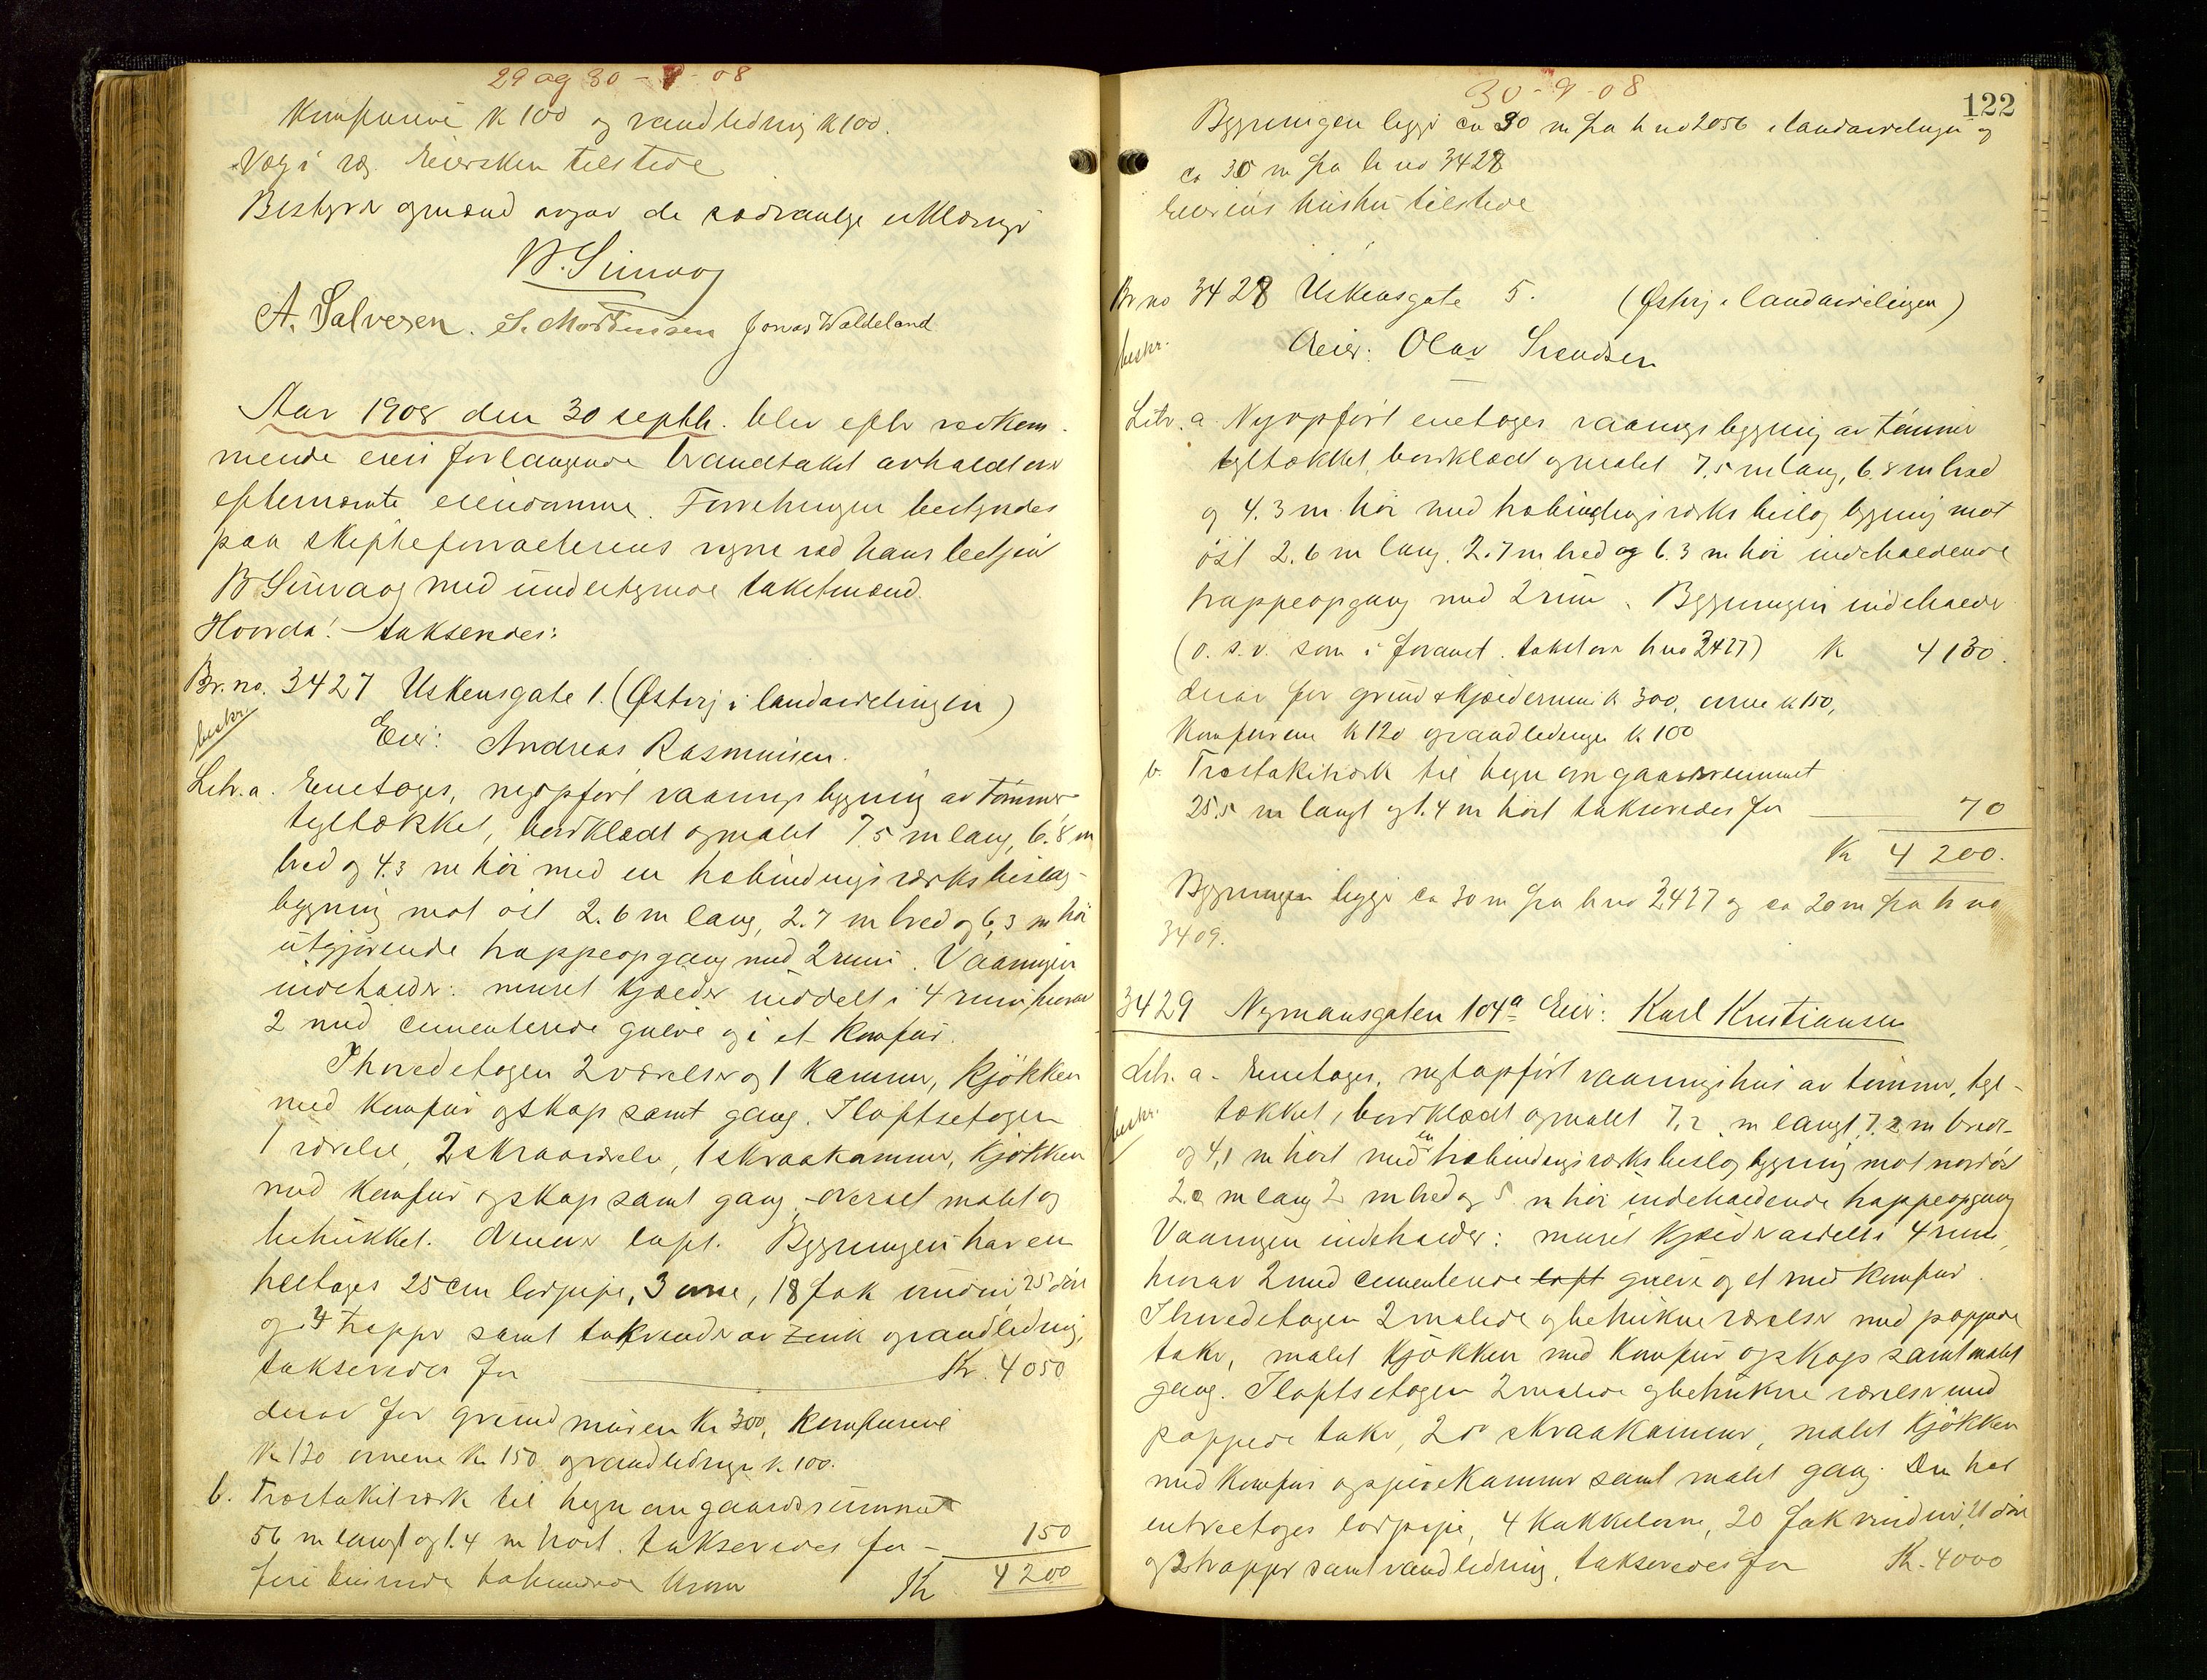 29 og 30 - 9 - 08
Komfurene k 100 og vandledning k 100.
Væg i væg. Eiersken tilstede
Bestyrer og mænd avgav de sedvanlge erklæringer
B. Simvaag
A. Salvesen. S. Mortensen Jonas Waldeland
Aar 1908 den 30 septbr. blev efter vedkom-
mende eiers forlangende brandtakst avholdt over
efternævnte eiendomme. Forretningen bestyredes
paa skifteforvalterens vegne ved hans betjent
B Simvaag med undertegnede takstmænd.
Hvorda! - takseredes:
Br. no. 3427 Uskensgate 1. (Østrij i landavdelingen)
beskr.
Eier: Andreas Rasmussen.
Litr. a. Enetages, nyopført vaaningsbygning av tømmer
tegltækket, bordklædt og malet 7.5 m lang, 6.8 m
bred og 4.3 m høi med en utbindingsverks beslag-
bygning mot øst 2.6 m lang, 2.7 m bred og 6,3 m høi
utgjørende trappeopgang med 2 rum. Vaaningen
indeholder: muret kjælder inddelt i 4 rum hvorav
2 med cementerede gulve og i et komfur.
I hovedetagen 2 værelser og 1 kammer, kjøkken
med komfur og skap samt gang. I loftsetagen
1 værelse, 2 skraaværelser, 1 skraakammer, kjøkken
med komfur og skap samt gang - overalt malet og
betrukket. Derover loft. Bygningen har en
heltages 25 cm lodpipe, 3 ovne, 18 fak vinduer, 25 døre
og 4 trapper samt takrender av zink og vandledning,
takseredes for Kr. 4050
derav for grundmuren Kr 300, komfurene
Kr 120 ovnene Kr 150 og vandledningen k. 100.
b. Træstakitverk til hegn om gaardsrummet
56 m langt og 1.4 m høit. takseredes for - 150
fire tusinde tohundrede kroner Kr 4200
30 - 9 - 08
122
Bygningen ligger ca 90 m fra br no 2056 i landavdelingen og
ca 30 m fra br no 3428
Eierens hustru tilstede
Br no 3428 Uskensgate 5. (Østrij i landavdelingen)
beskr.
Eier: Olav Svendsen
Litr. a Nyopført enetages vaaningsbygning av tømmer
tegltækket, bordklædt og malet 7.5 m lang, 6.8 m bred
og 4.3 m høi med utbindingsverks beslag bygning mot
øst 2.6 m lang, 2.7 m bred og 6.3 m høi indeholdende
trappeopgang med 2 rum. Bygningen indeholder
(o. s. v. som i foranst. takst over br no 3427) K 4130.
derav for grund & kjældermur k 300, ovne k 150,
komfurene k 120 og vandledningen k 100
b. Træstakitverk til hegn om gaardsrummet
25.5 m langt og 1.4 m høit takseredes for 70
Kr 4200.
Bygningen ligger ca 30 m fra br no 3427 og ca 20 m fra br no
3409.
3429 Nymansgaten 104a Eier: Karl Kristiansen
beskr.
Litr. a - Enetages, nytopført vaaningshus av tømmer, tegl-
tækket, bordklædt og malet 7,2 m langt, 7.2 m bredt
og 4,1 m høit med en utbindingsverks beslag bygning mot nordøst
2.2 m lang 2 m bred og 5 m høi indeholdende trappeopgang
Vaaningen indeholder: muret kjælder avdelt i 4 rum,
hvorav 2 med cementerede loft gulve og et med komfur.
I hovedetagen 2 malede og betrukne værelser med pappede
take, malet kjøkken med komfur og skap samt malet
gang. I loftsetagen 2 malede og betrukne værelser med
pappede take, 2 do skraakammer, malet kjøkken
med komfur og spisekammer samt malet gang. Den har
en treetages lodpipe, 4 kakkelovne, 20 fak vinduer, 21 døre
og 3 trapper samt vandledning, takseredes for Kr. 4000